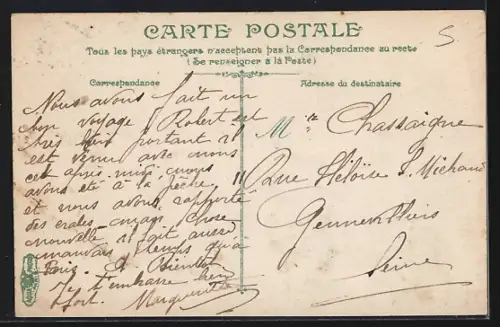 CARTE POSTALE
Tous les pays étrangers n'acceptent pas la Correspondance au recto
(Se renseigner à la Poste)
Correspondance
Adresse du destinataire
Nous avons fait un
bon voyage Robert est
très bien portant il
est venu avec nous
cet après-midi nous
avons été à la pêche
et nous avons rapporté
des crabes
chose
nouvelle il fait aussi
mauvais temps qu'à
Paris. A Bientôt
Je t'embrasse bien
fort. Marguerite
Mlle Chassaigne
11 Rue Héloïse & Michaud
Gennevilliers
Seine
5